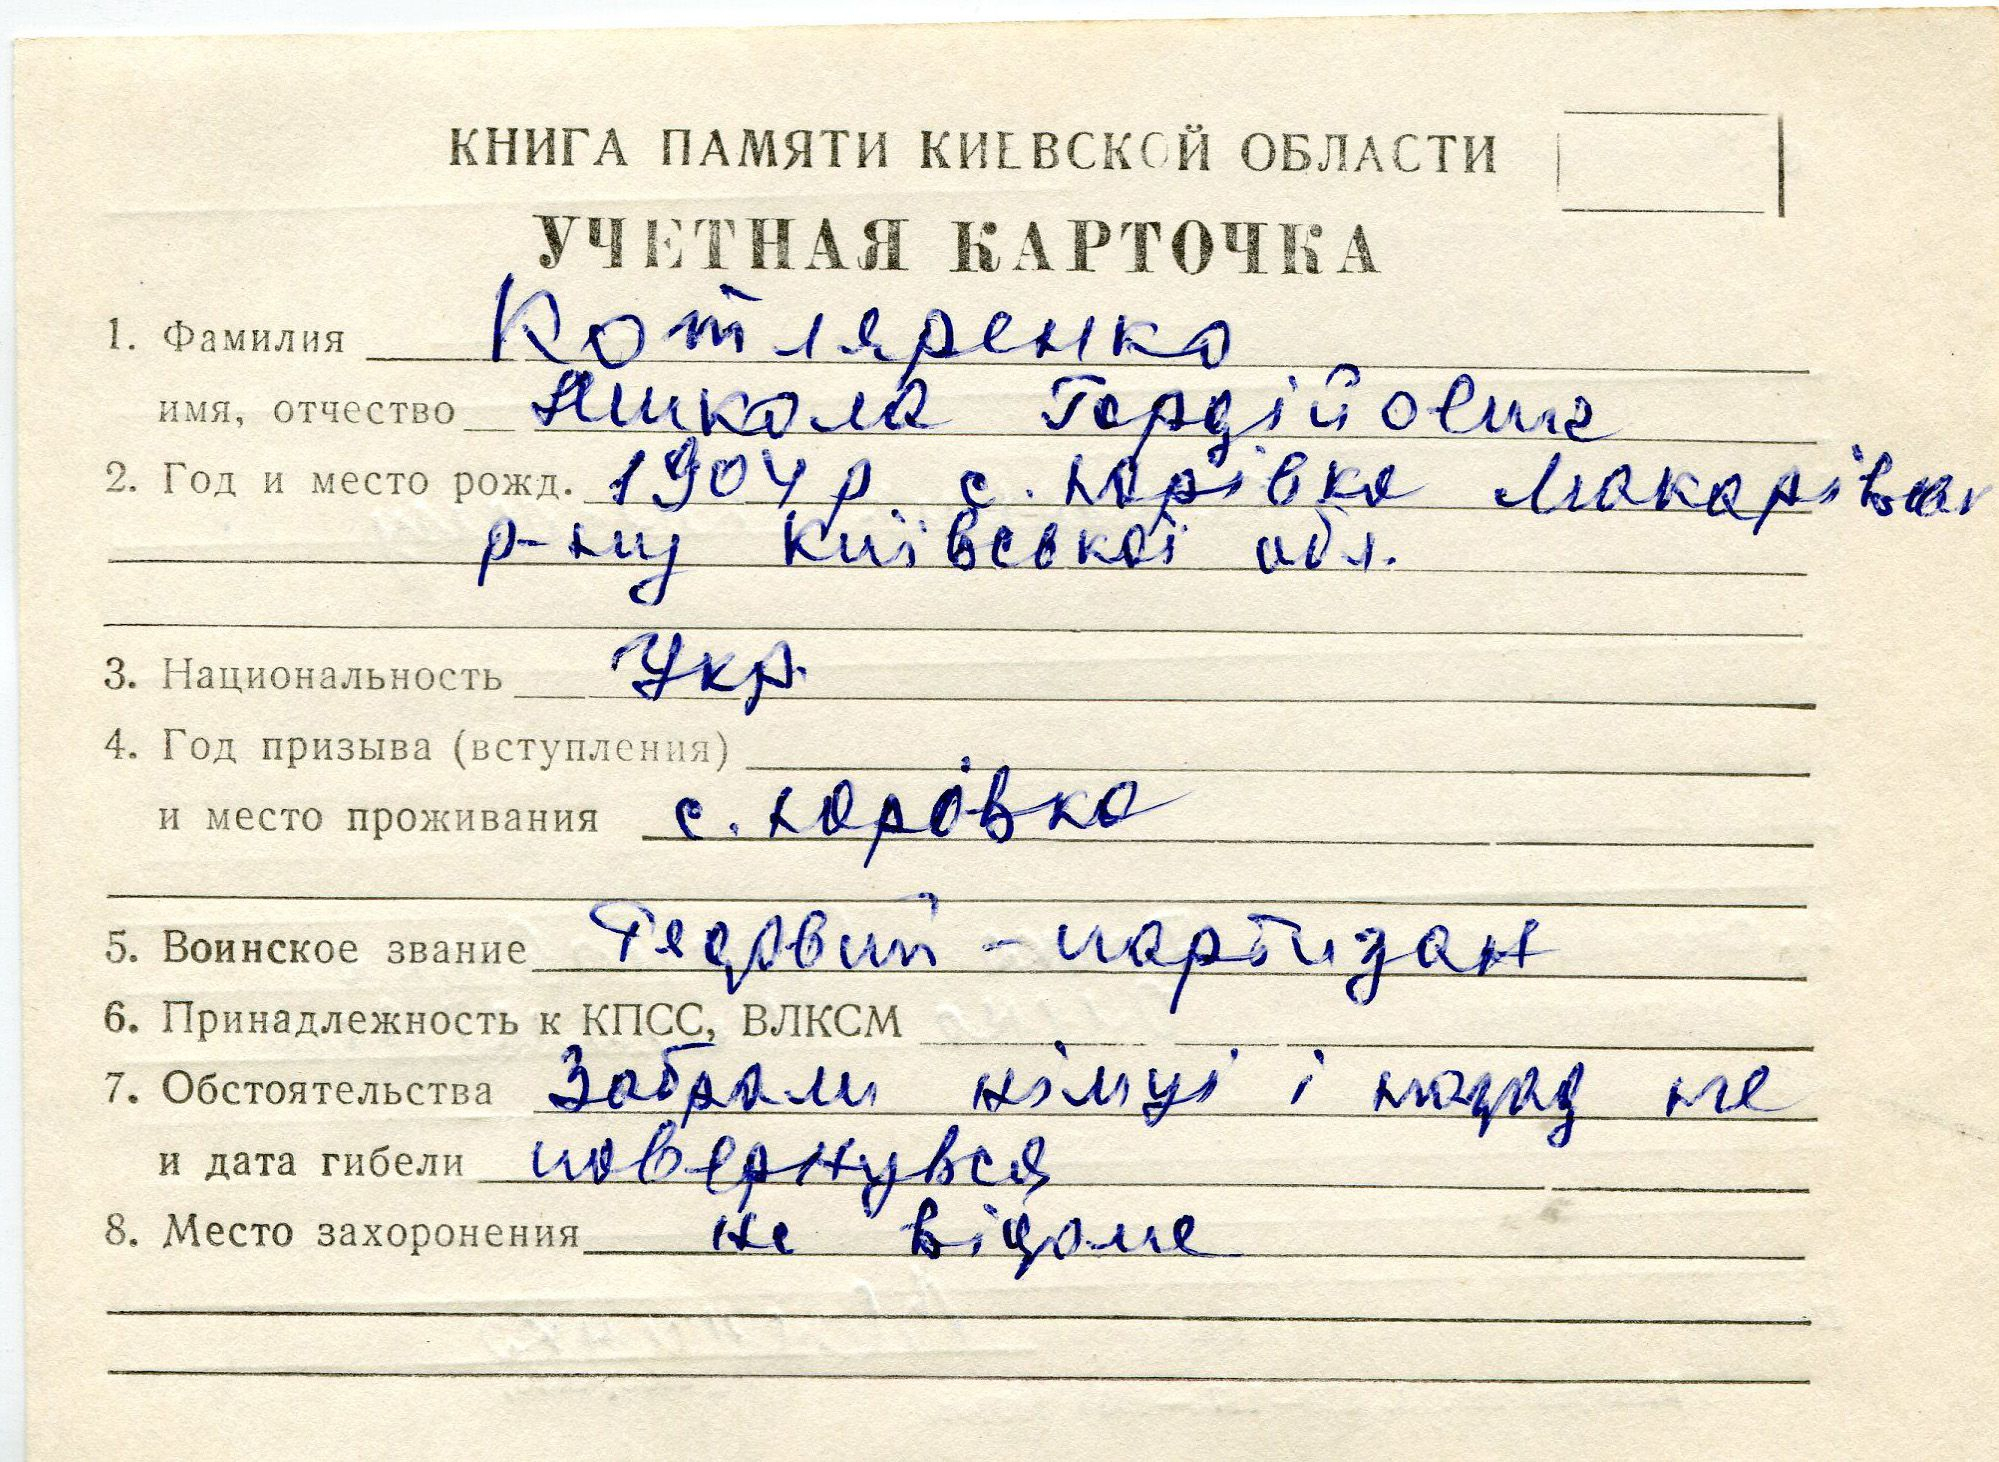 КНИГА ПАМЯТИ КИЕВСКОЙ ОБЛАСТИ
УЧЕТНАЯ КАРТОЧКА
1. Фамилия Котляренко
имя, отчество Микола Гордійович
2. Год и место рожд. 1904 р с. Юрівка Макарівськ
р-ну Київської обл.
3. Национальность Укр.
4. Год призыва (вступления)
и место проживания с. Юрівка
5. Воинское звание Рядовий - партизан
6. Принадлежность к КПСС, ВЛКСМ
7. Обстоятельства Забрали німці і назад не
и дата гибели повернувся
8. Место захоронения не відоме